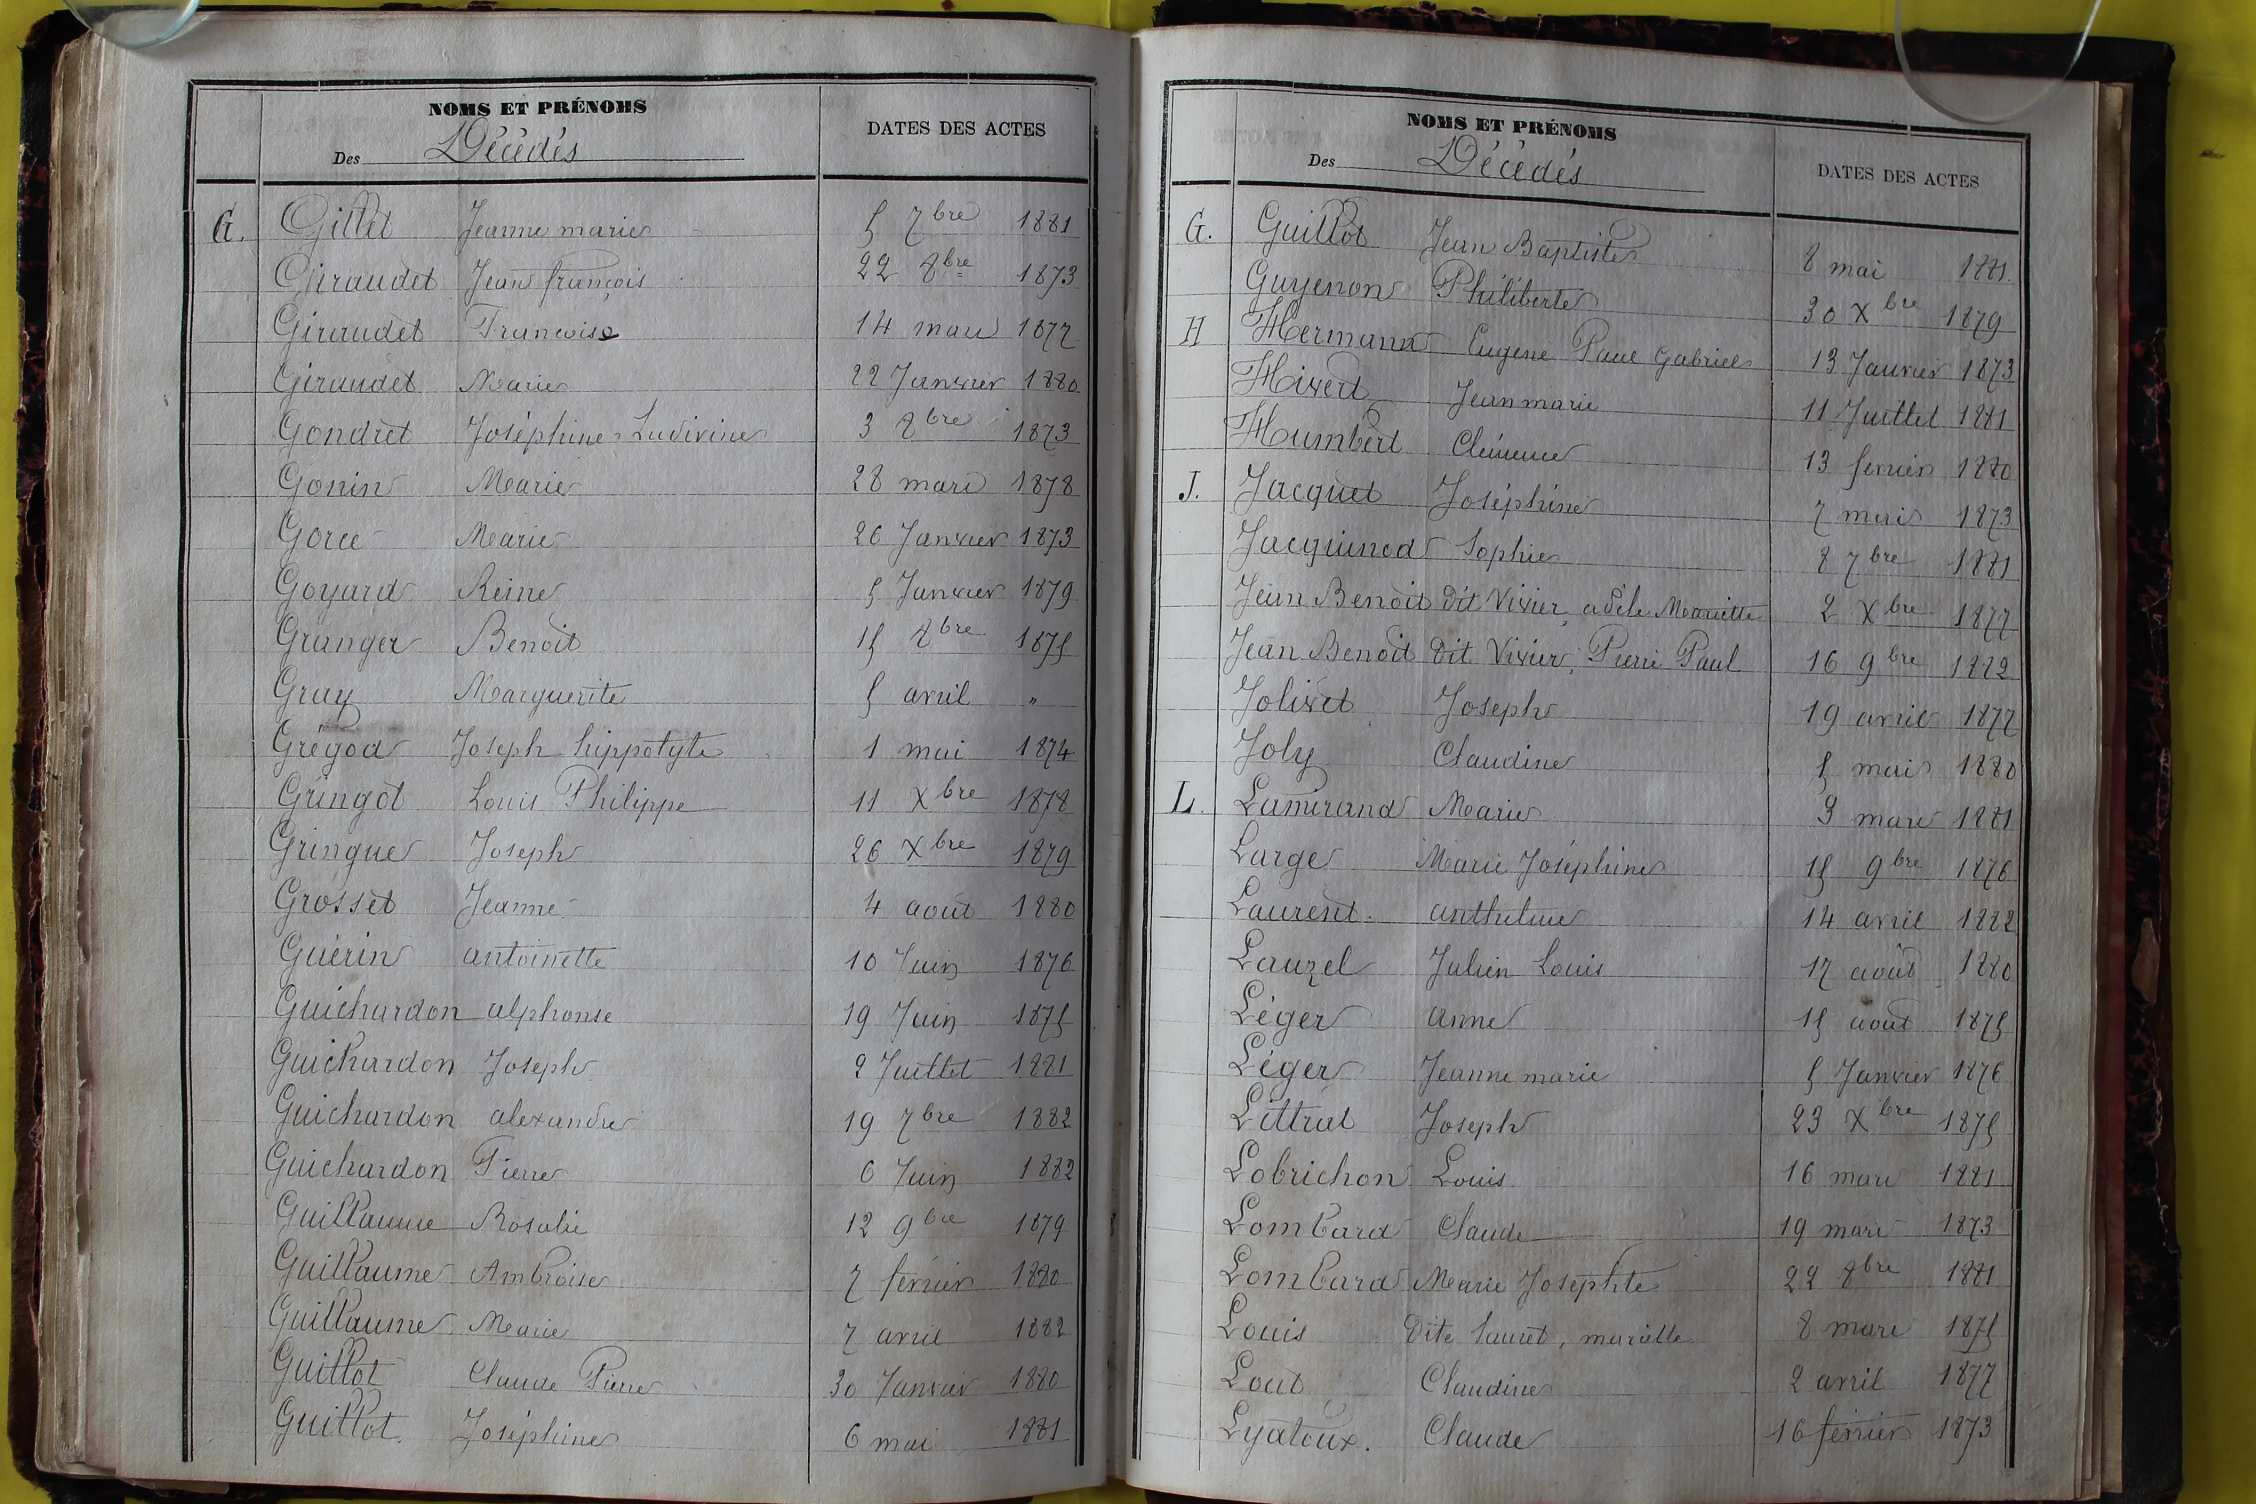 NOMS ET PRÉNOMS
Des Décédés
DATES DES ACTES
G. Gillet Jeanne marie 5 7bre 1881
Giraudet Jean françois 22 8bre 1873
Giraudet Francoise 14 mars 1877
Giraudet Marie 22 Janvier 1880
Gondret Joséphine Ludivine 3 8bre 1873
Gonin Marie 28 mars 1878
Gorce Marie 26 Janvier 1873
Goyard Reine 5 Janvier 1879
Granger Benoit 15 8bre 1875
Gray Marguerite 5 avril "
Gregod Joseph hippolyte 1 mai 1874
Gringot Louis Philippe 11 Xbre 1878
Gringue Joseph 26 Xbre 1879
Grosset Jeanne 4 août 1880
Guérin antoinette 10 Juin 1876
Guichardon alphonse 19 Juin 1875
Guichardon Joseph 2 Juillet 1881
Guichardon alexandre 19 7bre 1882
Guichardon Pierre 6 Juin 1882
Guillaume Rosalie 12 9bre 1879
Guillaume Ambroise 7 février 1880
Guillaume Marie 7 avril 1882
Guillot Claude Pierre 30 Janvier 1880
Guillot Joséphine 6 mai 1881
NOMS ET PRÉNOMS
Des Décédés
DATES DES ACTES
G. Guillot Jean Baptiste 8 mai 1881
Guyenon Philiberte 30 Xbre 1879
H Hermann Eugène Paul Gabriel 13 Janvier 1873
Hivert Jean marie 11 Juillet 1881
Humbert Clémence 13 fevrier 1880
J. Jacquet Joséphine 7 mars 1873
Jacquinod Sophie 8 7bre 1881
Jean Benoit dit Vivier, adèle Mariette 2 Xbre 1877
Jean Benoit dit Vivier, Pierre Paul 16 9bre 1882
Jolivet Joseph 19 avril 1877
Joly Claudine 5 mars 1880
L. Lamirand Marie 3 mars 1881
Large Marie Joséphine 15 9bre 1876
Laurent anthelme 14 avril 1882
Lauzel Julien Louis 17 août 1880
Léger anne 15 août 1875
Léger Jeanne marie 5 Janvier 1876
Littrat Joseph 23 Xbre 1875
Lobrichon Louis 16 mars 1881
Lombard Claude 19 mars 1873
Lombard Marie Josephte 22 8bre 1881
Louis Dite Sauret, mariette 8 mars 1875
Lout Claudine 2 avril 1877
Lyatoux. Claude 16 février 1873